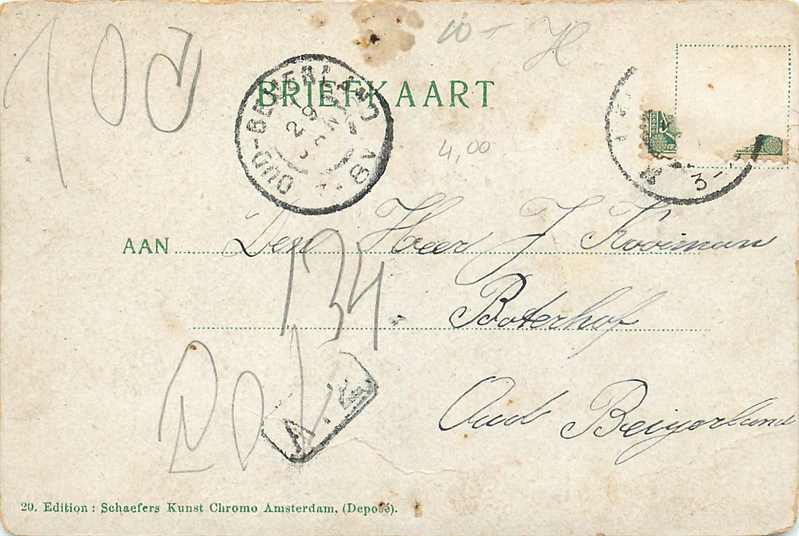 10 - H
BRIEFKAART
OUD-BEIERLAND
4,00
3-
AAN Den Heer J Kooiman
134.
Boterhof
Oud Beijerland
29. Edition: Schaefers Kunst Chromo Amsterdam, (Deposé).